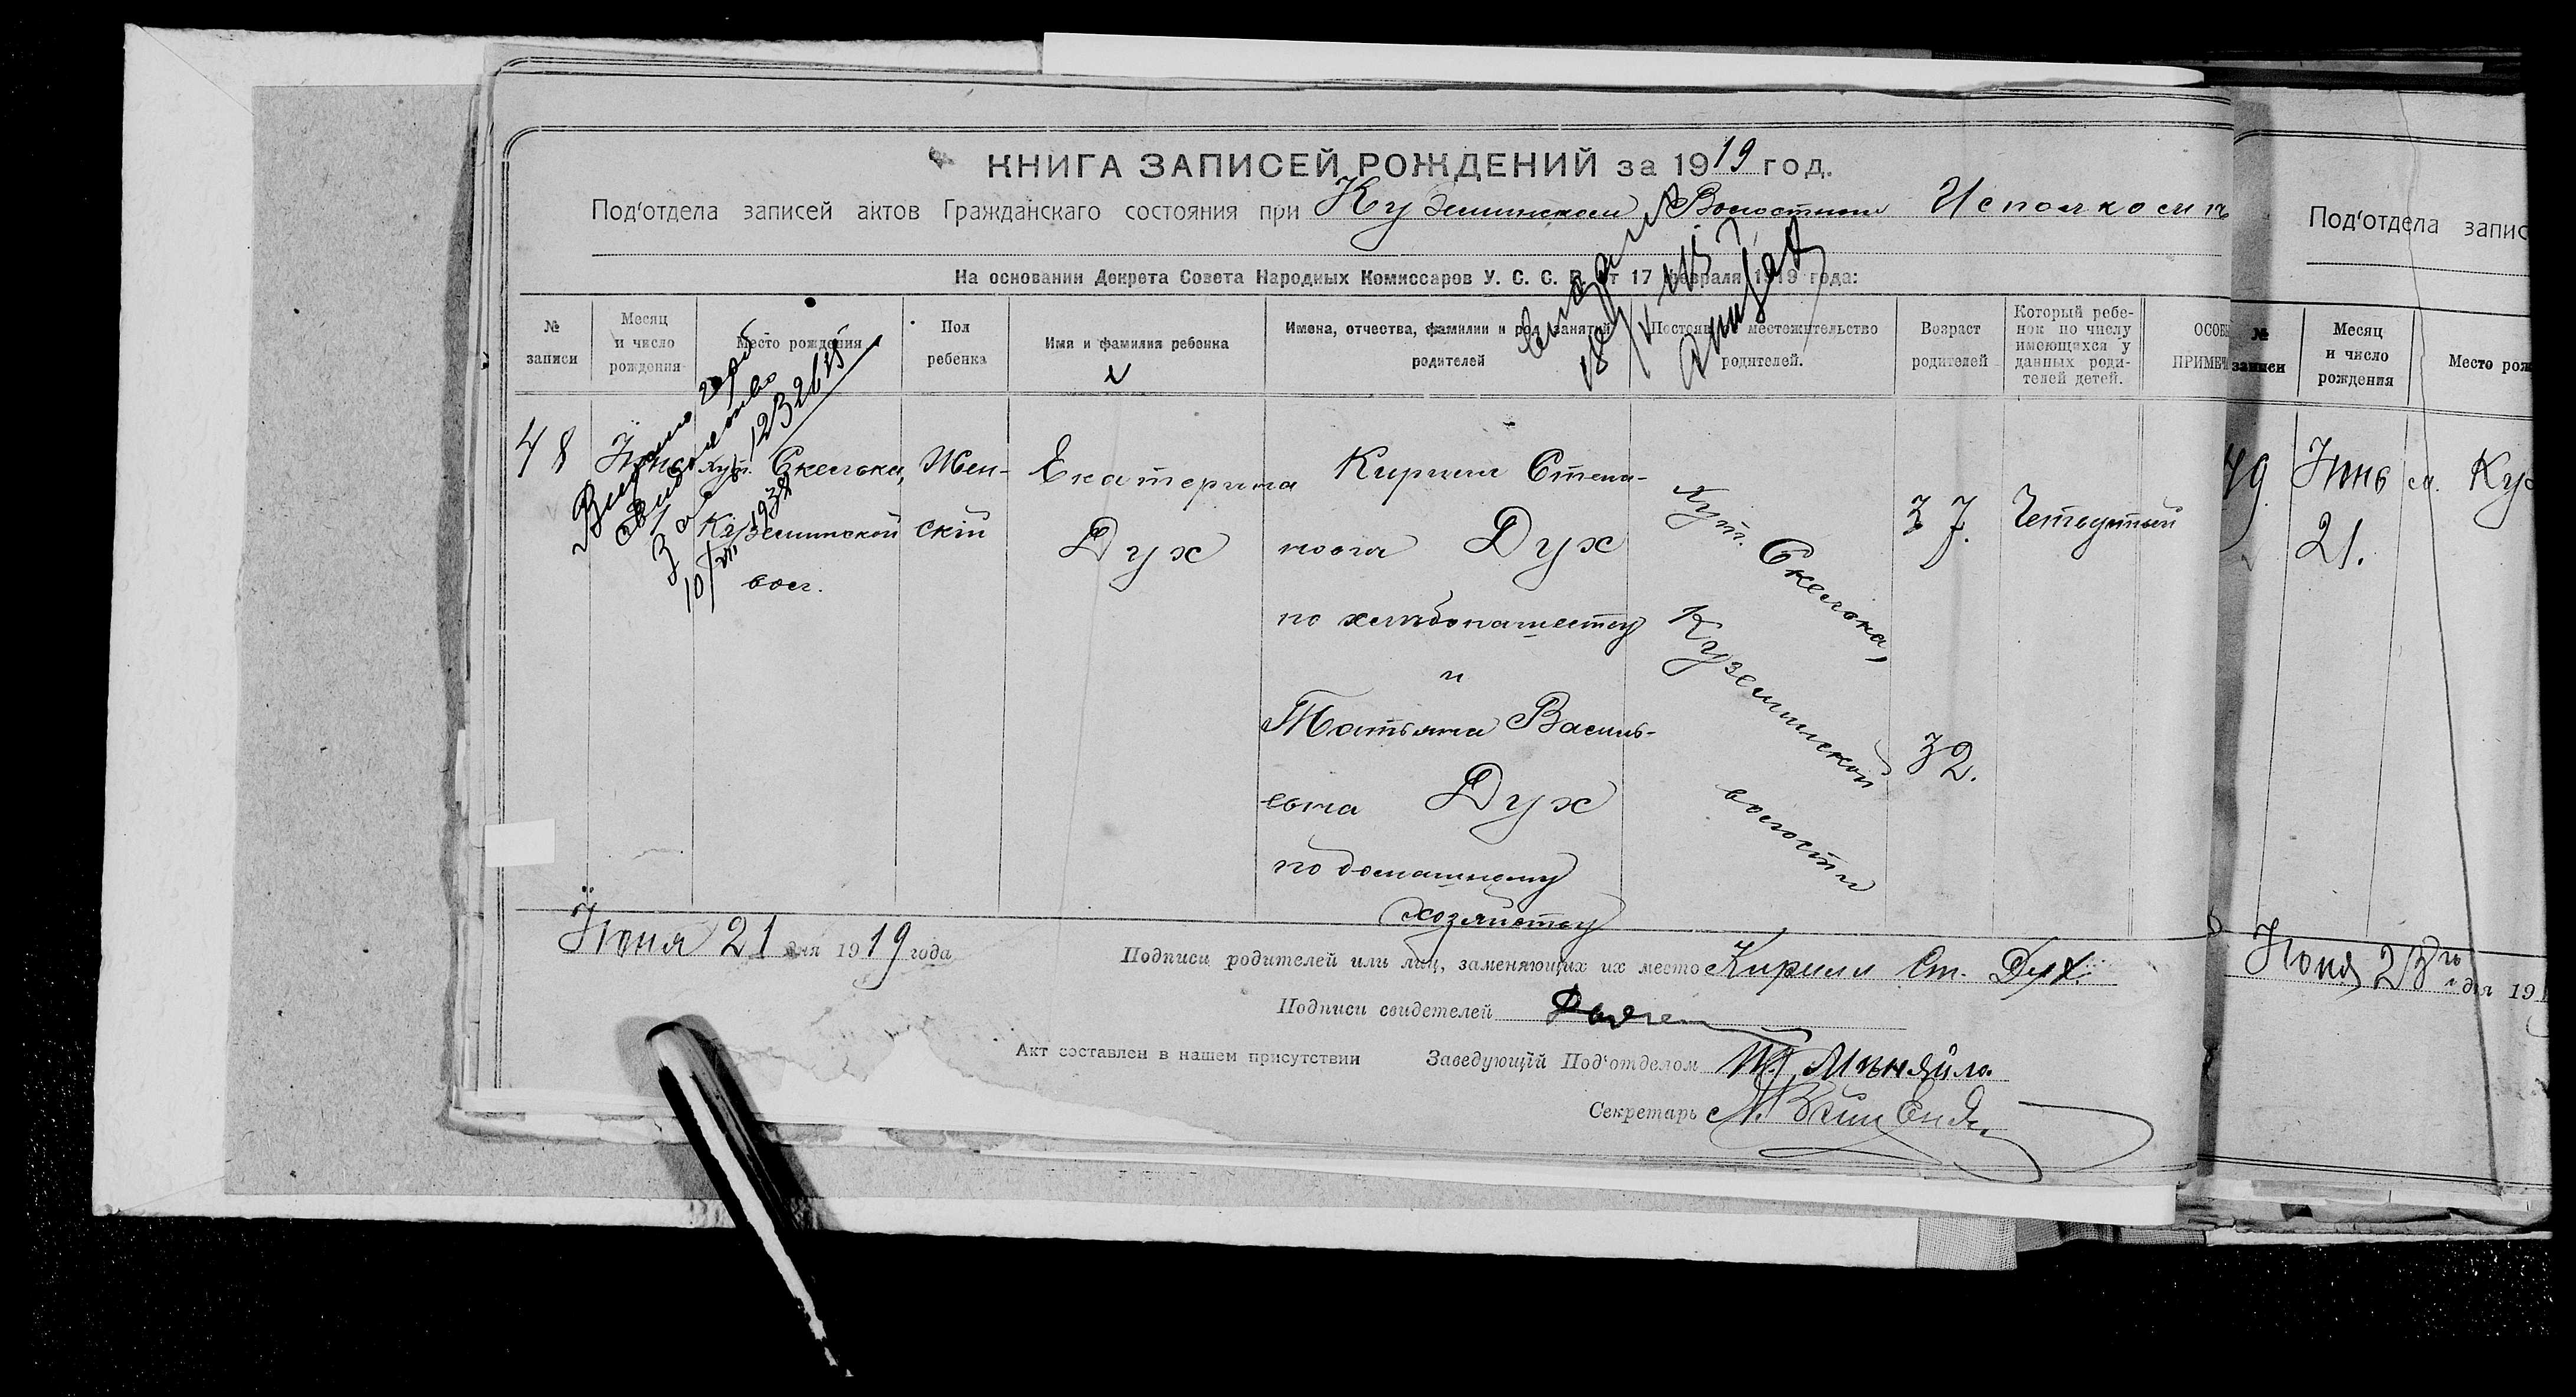 КНИГА ЗАПИСЕЙ РОЖДЕНИЙ за 1919 год.
Под'отдела записей актов Гражданскаго состояния при Куземинском Волостном Исполкомѣ
На основании Декрета Совета Народных Комиссаров У. С. С. Р. от 17 февраля 1919 года:
№ записи
Месяц и число рождения
Место рождения
Пол ребенка
Имя и фамилия ребенка
Имена, отчества, фамилии и род занятий родителей
Постоян местожительство родителей.
Возраст родителей
Который ребенок по числу имеющихся у данных родителей детей.
ОСОБЫ
ПРИМЕЧ
48
Хут. Скелька,
Куземинской
вол.
Жен-
скій
Екатерина
Дух
Кирилл Степа-
нов
Дух
по хлѣбопашеству
и
Татьяна Василь-
евна Дух
по домашнему
хозяйству
Хут. Скелька,
Куземинской
волости
37.
32.
Четвертый
свид
За
123261
10/VII 1938
Іюня 21 дня 1919 года
Подписи родителей или лиц, заменяющих их место Кирилл Ст. Дух.
Подписи свидетелей
Акт составлен в нашем присутствии
Заведующій Под'отделом Мѣняйло
Секретарь
Под'отдела запис
№ записи
Месяц и число рождения
Место рож
49
Іюнь
21.
м. Куз
Іюня 23го дня 19